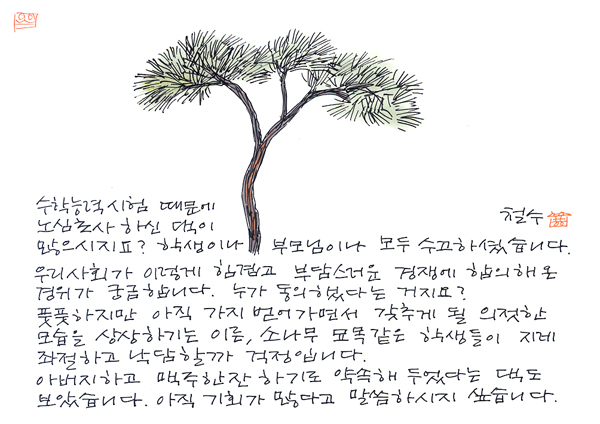 수학능력시험 때문에
노심초사 하신 댁이
많으시지요? 학생이나 부모님이나 모두 수고하셨습니다.
철수
우리사회가 이렇게 힘겹고 부담스러운 경쟁에 합의해온
경위가 궁금합니다. 누가 동의했다는 거지요?
풋풋하지만 아직 가지 벋어가면서 갖추게 될 의젓한
모습을 상상하기는 이른, 소나무 묘목같은 학생들이 지레
좌절하고 낙담할까 걱정입니다.
아버지하고 맥주한잔 하기로 약속해 두었다는 댁도
보았습니다. 아직 기회가 많다고 말씀하시지 싶습니다.